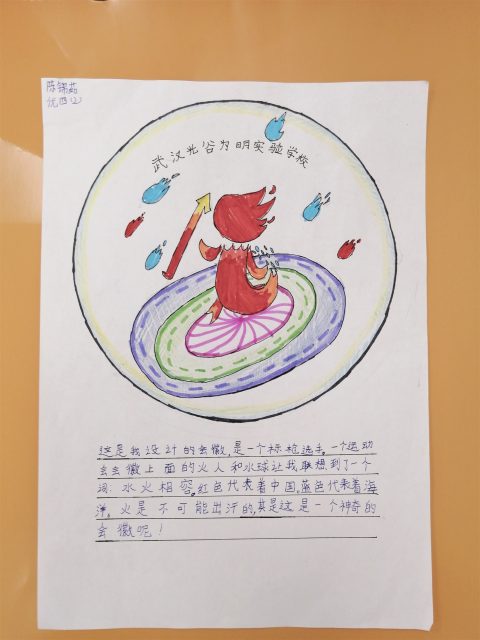 陈锦茹
优四(2)
武汉光谷为明实验学校
这是我设计的会徽,是一个标枪选手。一个运动
会会徽上面的火人和水球让我联想到了一个
词:水火相容。红色代表着中国,蓝色代表着海
洋。火是不可能出汗的,真是这是一个神奇的
会徽呢!